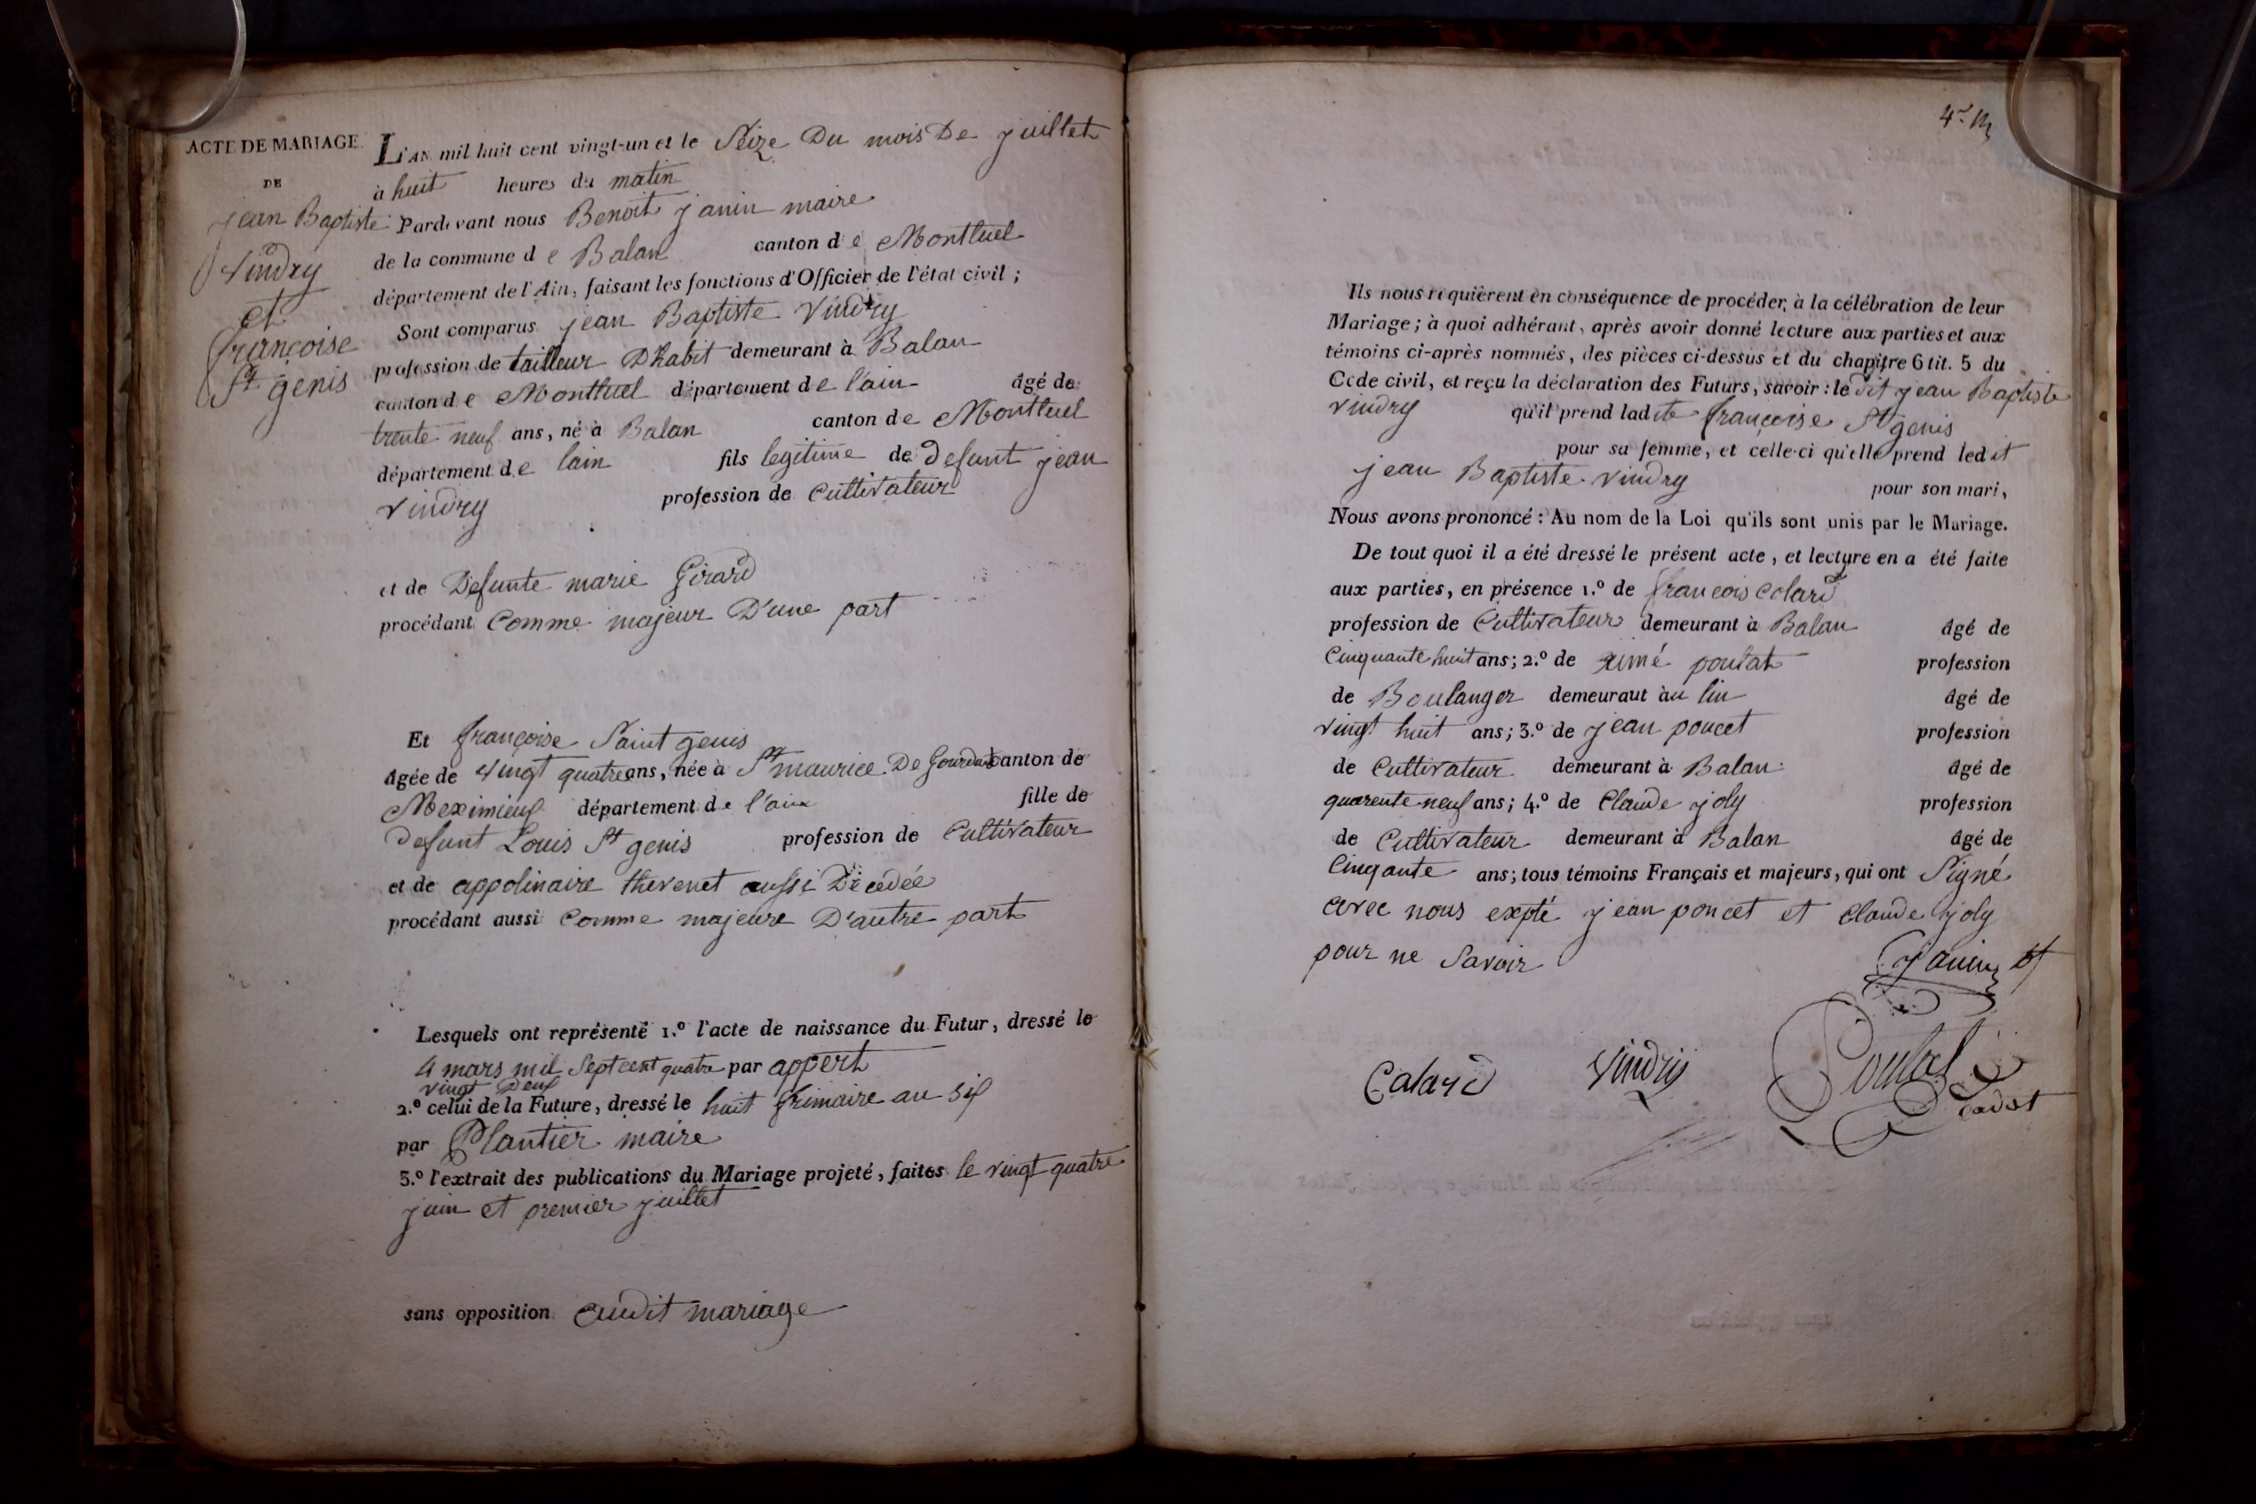 ACTE DE MARIAGE
DE
jean Baptiste
Vindry
et
françoise
St genis
L'AN mil huit cent vingt-un et le Seize Du mois De juillet
à huit heures du matin
Pardevant nous Benoit janin maire
de la commune de Balan canton de Montluel
département de l'Ain, faisant les fonctions d'Officier de l'état civil ;
Sont comparus jean Baptiste Vindry
profession de tailleur D'habit demeurant à Balan
canton de Montluel département de l'ain âgé de
trente neuf ans, né à Balan canton de Montluel
département de lain fils legitime de defunt jean
vindry profession de Cultivateur
et de Defunte marie Girard
procédant Comme majeur D'une part
Et françoise Saint genis
âgée de vingt quatre ans, née à St maurice De Gourdan canton de
Meximieux département de l'ain fille de
defunt Louis St genis profession de Cultivateur
et de appolinaire thevenet aussi Décedée
procédant aussi Comme majeure D'autre part
Lesquels ont représenté 1.º l'acte de naissance du Futur, dressé le
4 mars mil Sept cent quatre par appert
vingt Deux
2.º celui de la Future, dressé le huit frimaire an Six
par Plantier maire
3.º l'extrait des publications du Mariage projeté, faites le vingt quatre
juin et premier juillet
sans opposition audit mariage
4e
Ils nous requièrent en conséquence de procéder, à la célébration de leur
Mariage ; à quoi adhérant, après avoir donné lecture aux parties et aux
témoins ci-après nommés, des pièces ci-dessus et du chapitre 6 tit. 5 du
Code civil, et reçu la déclaration des Futurs, savoir : le dit jean Baptiste
vindry qu'il prend ladite françoise St genis
pour sa femme, et celle-ci qu'elle prend ledit
jean Baptiste vindry pour son mari,
Nous avons prononcé : Au nom de la Loi qu'ils sont unis par le Mariage.
De tout quoi il a été dressé le présent acte, et lecture en a été faite
aux parties, en présence 1.º de françois Colard
profession de Cultivateur demeurant à Balan âgé de
Cinquante huit ans ; 2.º de aimé poulat profession
de Boulanger demeuraut à au lin âgé de
vingt huit ans ; 3.º de jean poncet profession
de Cultivateur demeurant à Balan âgé de
quarente neuf ans ; 4.º de Claude joly profession
de Cultivateur demeurant à Balan âgé de
Cinqante ans ; tous témoins Français et majeurs, qui ont Signé
avec nous expté jean poncet et Claude joly
pour ne Savoir
Janin
Calard Vindry Poulat